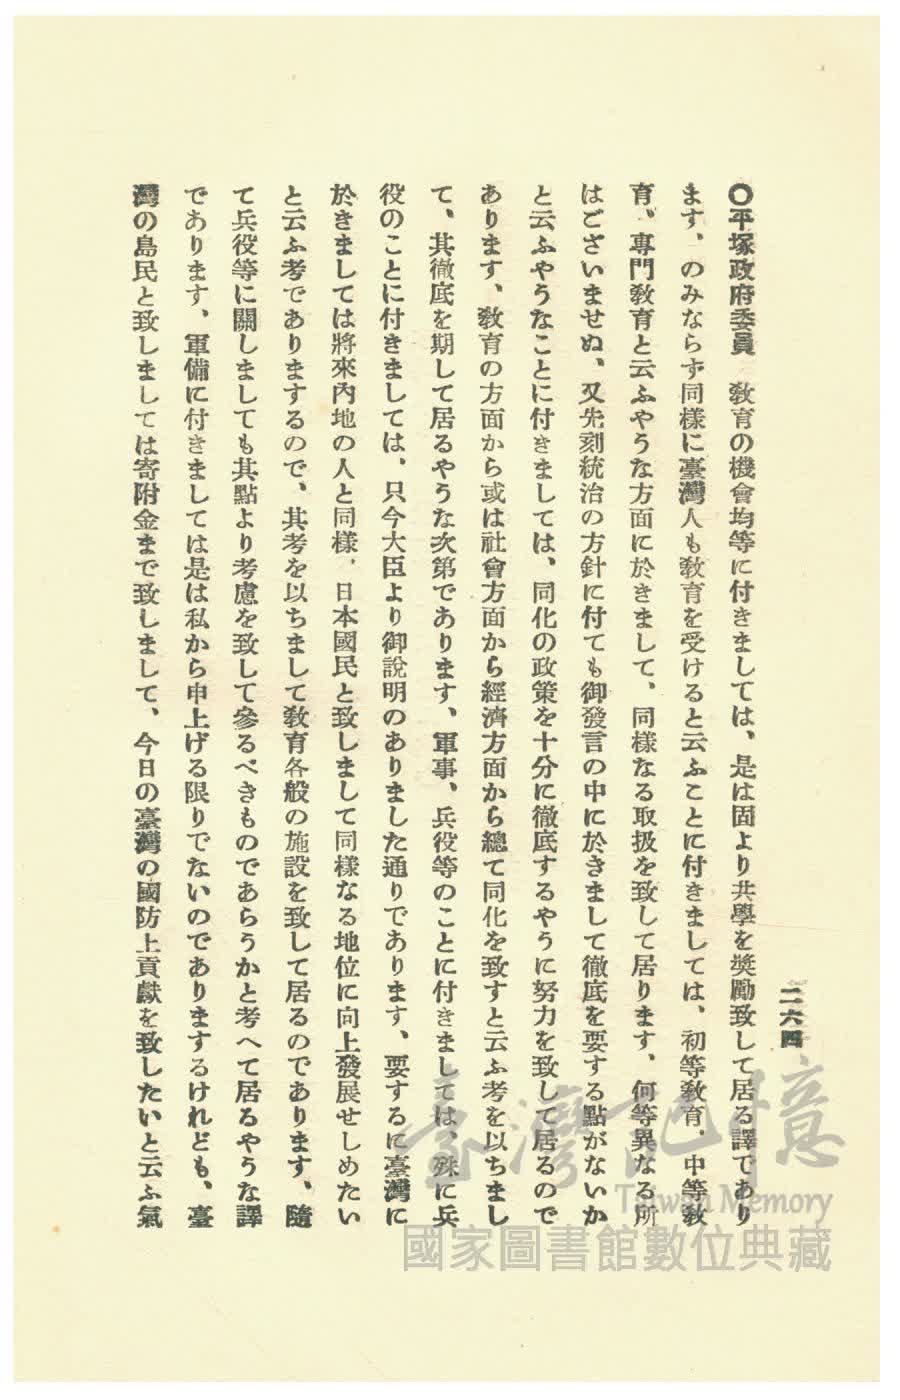 二六四
〇平塚政府委員　敎育の機會均等に付きましては、是は固より共學を奬勵致して居る譯であり
ます、のみならず同樣に臺灣人も敎育を受けると云ふことに付きましては、初等敎育、中等敎
育、專門敎育と云ふやうな方面に於きまして、同樣なる取扱を致して居ります、何等異なる所
はございませぬ、又先刻統治の方針に付ても御發言の中に於きまして徹底を要する點がないか
と云ふやうなことに付きましては、同化の政策を十分に徹底するやうに努力を致して居るので
あります、敎育の方面から或は社會方面から經濟方面から總て同化を致すと云ふ考を以ちまし
て、其徹底を期して居るやうな次第であります、軍事、兵役等のことに付きましては、殊に兵
役のことに付きましては、只今大臣より御說明のありました通りであります、要するに臺灣に
於きましては將來內地の人と同樣、日本國民と致しまして同樣なる地位に向上發展せしめたい
と云ふ考でありまするので、其考を以ちまして敎育各般の施設を致して居るのであります、隨
て兵役等に關しましても其點より考慮を致して參るべきものであらうかと考へて居るやうな譯
であります、軍備に付きましては是は私から申上げる限りでないのでありまするけれども、臺
灣の島民と致しましては寄附金まで致しまして、今日の臺灣の國防上貢獻を致したいと云ふ氣
臺灣記憶
Taiwan Memory
國家圖書館數位典藏